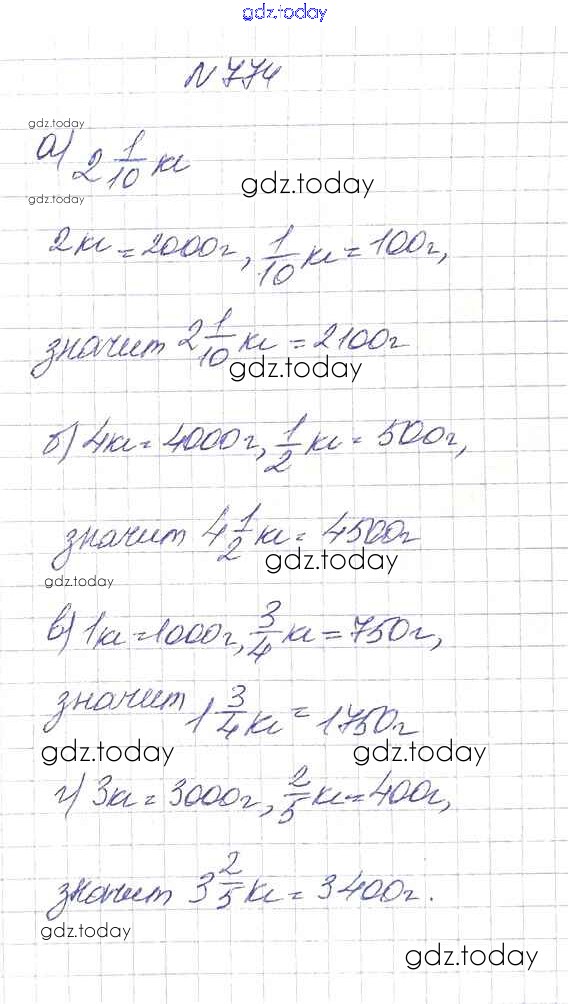 gdz.today
№ 774
gdz.today
а) 2 1/10 кг
gdz.today
gdz.today
2кг = 2000г, 1/10 кг = 100г,
значит 2 1/10 кг = 2100г
gdz.today
б) 4кг = 4000г, 1/2 кг = 500г,
значит 4 1/2 кг = 4500г
gdz.today
gdz.today
в) 1кг = 1000г, 3/4 кг = 750г,
значит 1 3/4 кг = 1750г
gdz.today gdz.today
г) 3кг = 3000г, 2/5 кг = 400г,
значит 3 2/5 кг = 3400г.
gdz.today
gdz.today